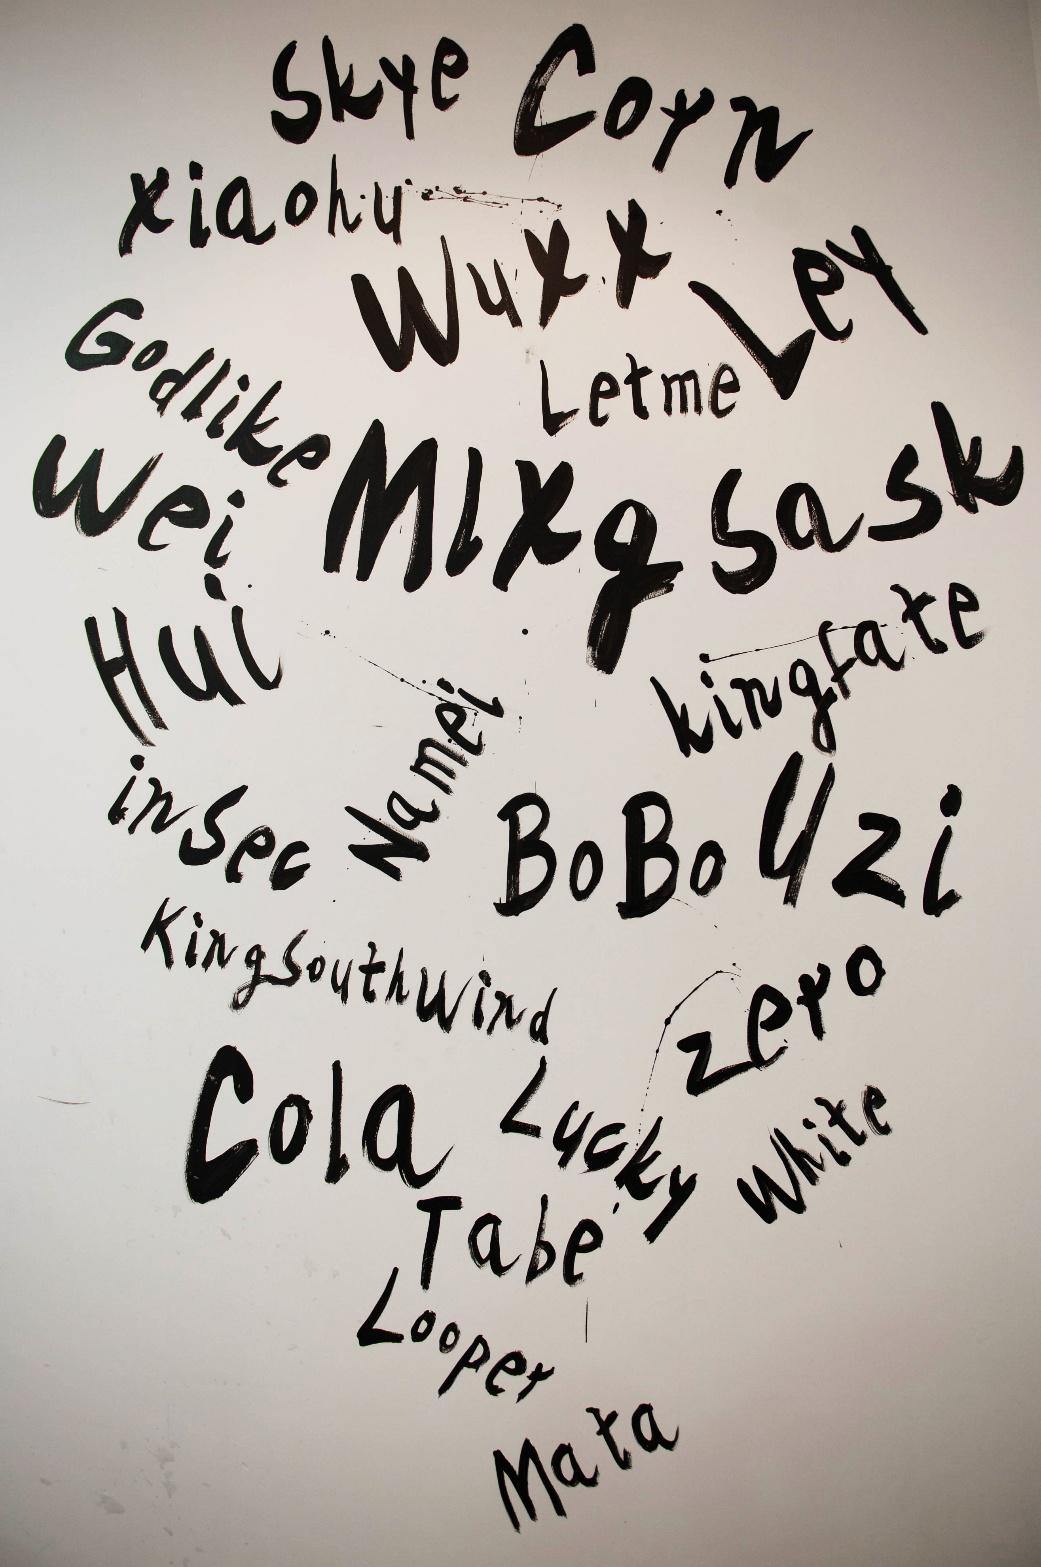 Skye Corn
xiaohu
Wuxx
Ley
Godlike
Letme
Wei
Mlxg
Sask
Hui
kingfate
Namei
inSec
BoBo
Uzi
KingSouthWind
zero
Cola
Lucky
White
Tabe
Looper
Mata